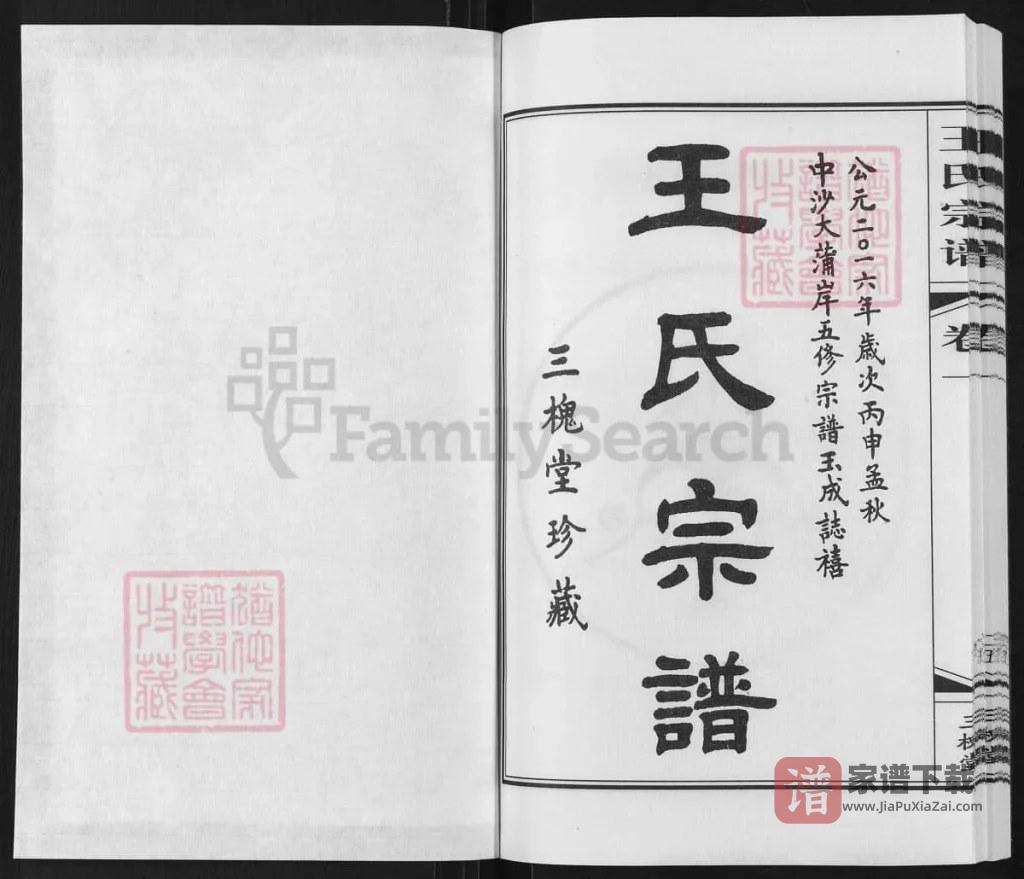 公元二〇一六年歲次丙申孟秋
中沙大蒲岸五修宗譜玉成誌禧
王氏宗譜
三槐堂珍藏
王氏宗谱
卷一
三槐堂
FamilySearch
谱
家谱下载
www.JiaPuXiaZai.com